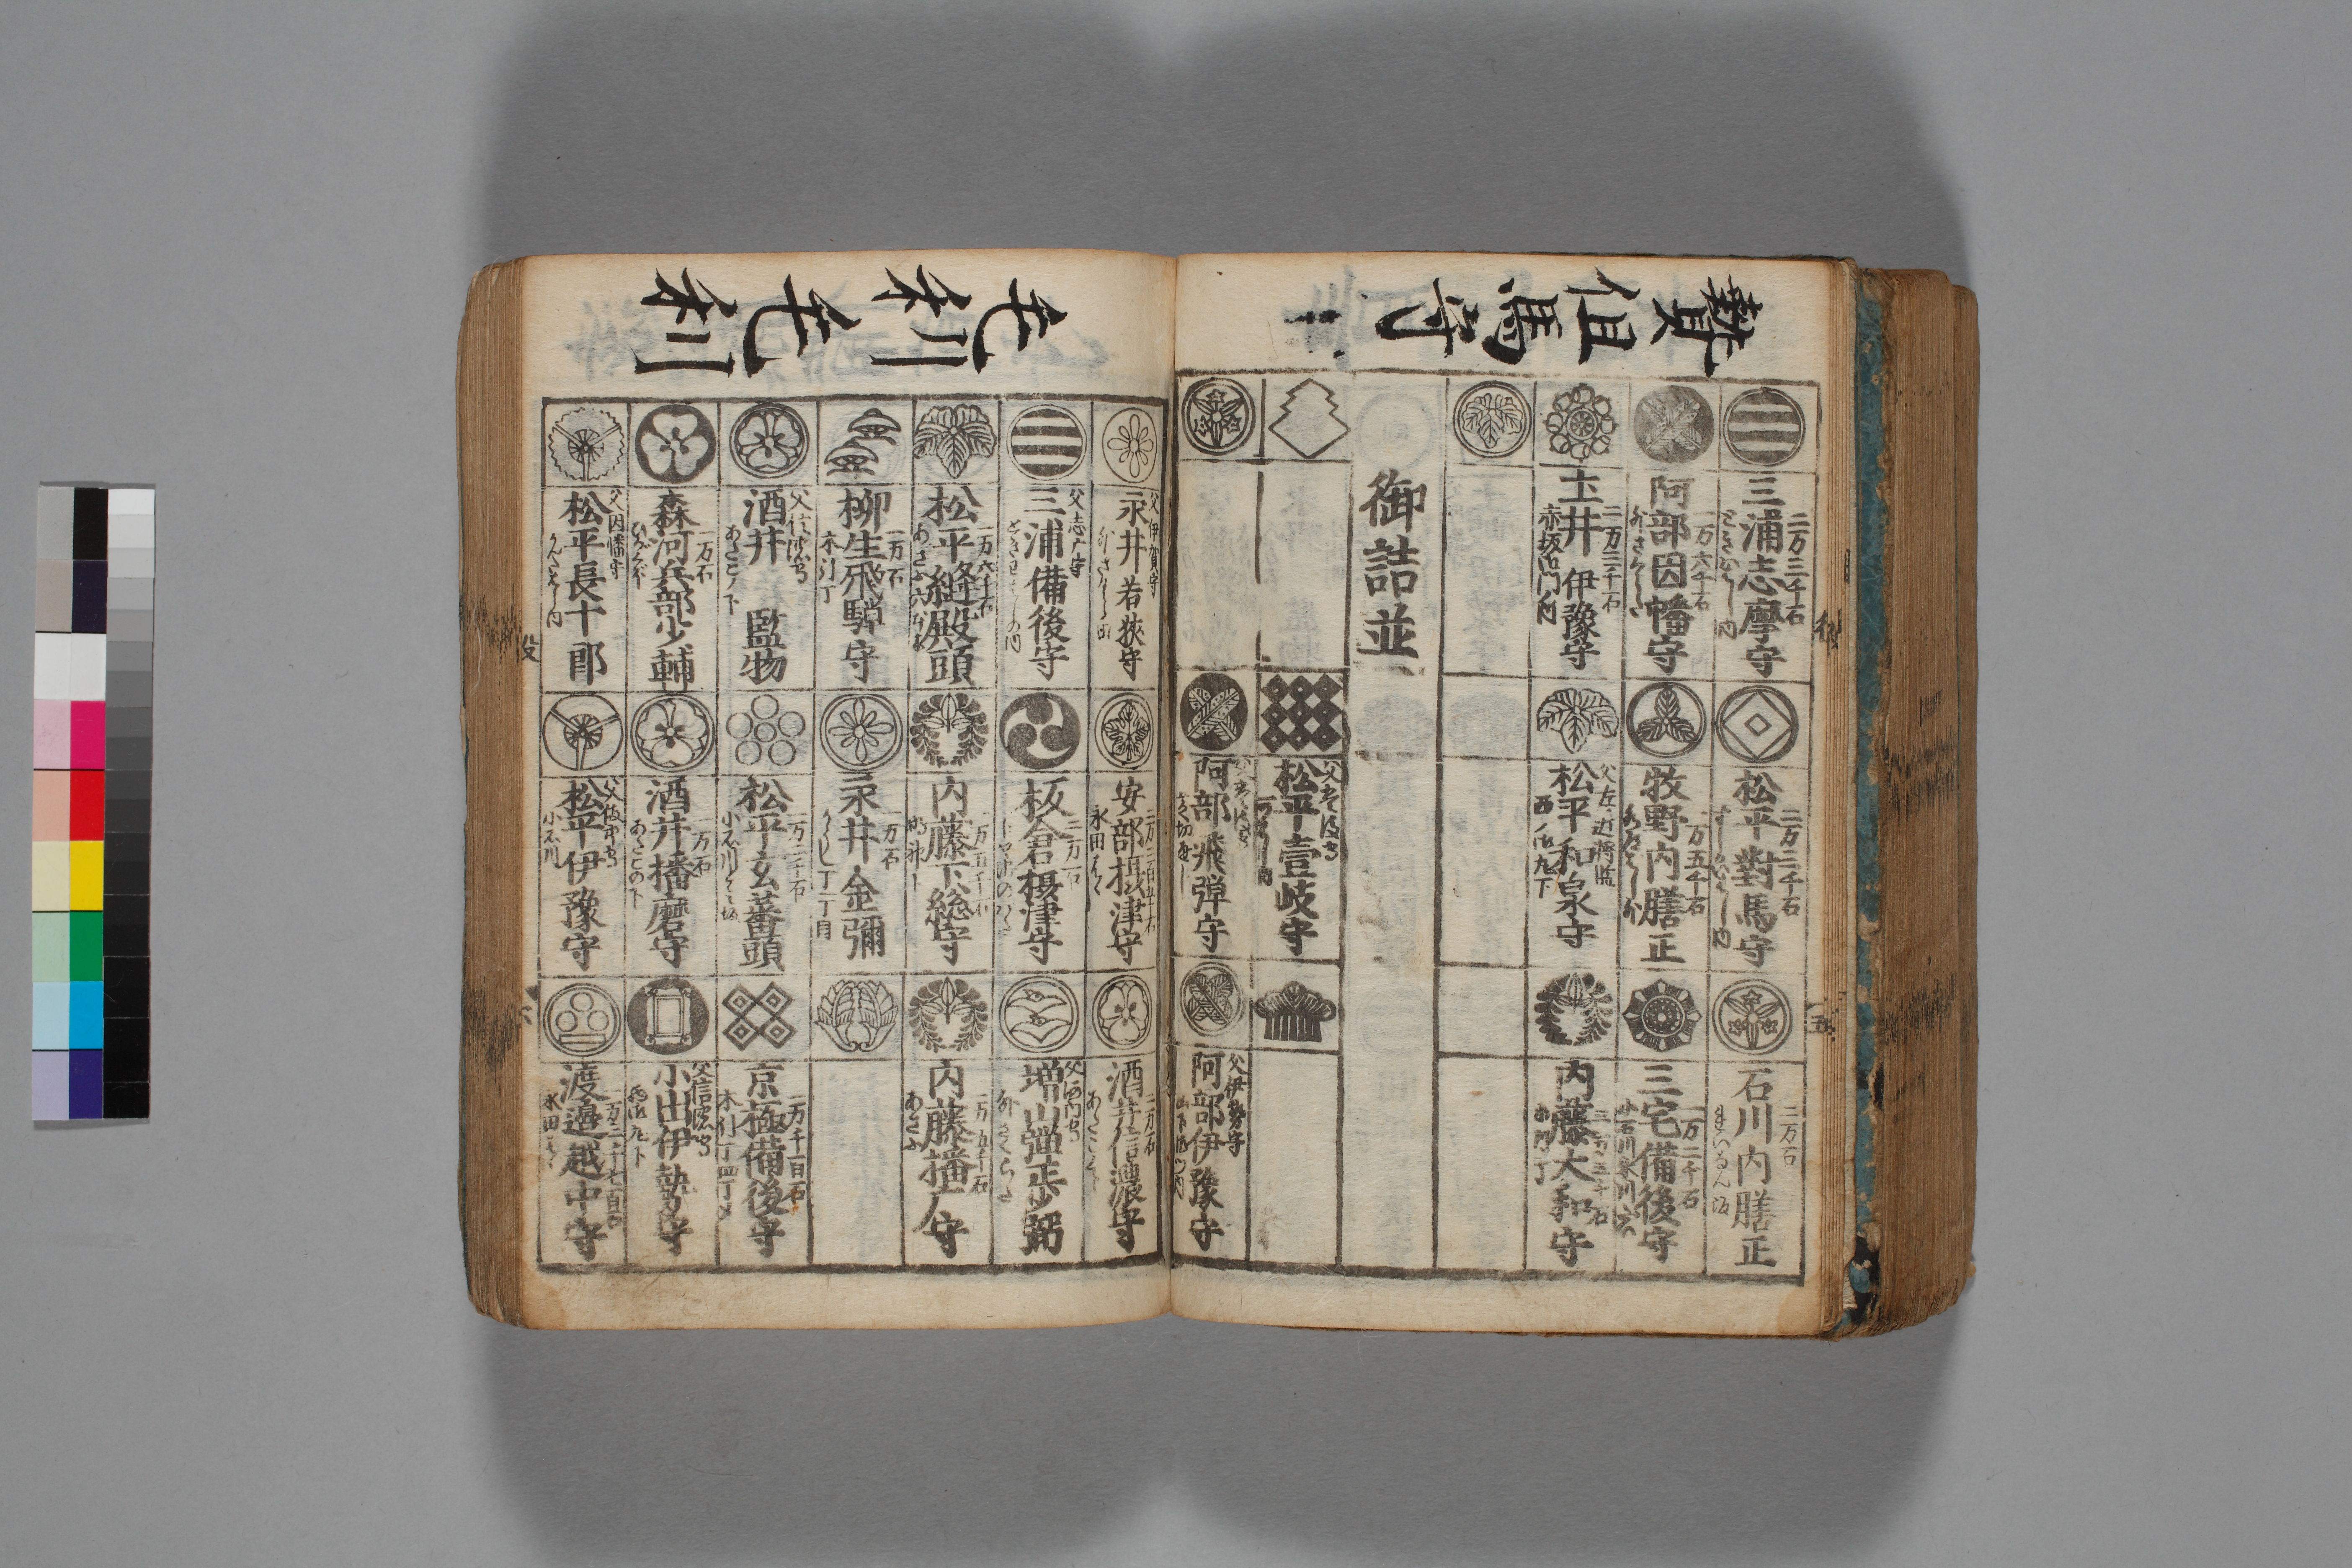 贄但馬守
三浦志摩守
二万三千石
松平對馬守
二万二千石
石川内膳正
二万石
阿部因幡守
一万六千石
牧野内膳正
一万五千石
三宅備後守
一万二千石
土井伊豫守
二万三千石
赤坂御門内
松平和泉守
父左近将監
西ノ御丸下
内藤大和守
三万三千石
御詰並
松平壹岐守
阿部飛弾守
阿部伊豫守
父伊勢守
毛利毛利
永井若狭守
父伊賀守
安部摂津守
二万二百五十石
永田
酒井信濃守
二万石
三浦備後守
父志摩守
板倉摂津守
二万石
増山弾正少弼
父河内守
松平縫殿頭
一万六千石
内藤下総守
一万五千石
内藤播广守
二万五千石
柳生飛騨守
一万石
木引丁
永井金彌
一万石
酒井監物
父信濃守
あたこノ下
松平玄蕃頭
一万二千石
小石川
京極備後守
二万千一百石
木引丁四丁メ
森河兵部少輔
一万石
酒井播磨守
一万石
あたこの下
小出伊勢守
父信濃守
西御丸下
松平長十郎
父因幡守
松平伊豫守
小石川
渡邉越中守
一万三千七百石
永田
役
五
六